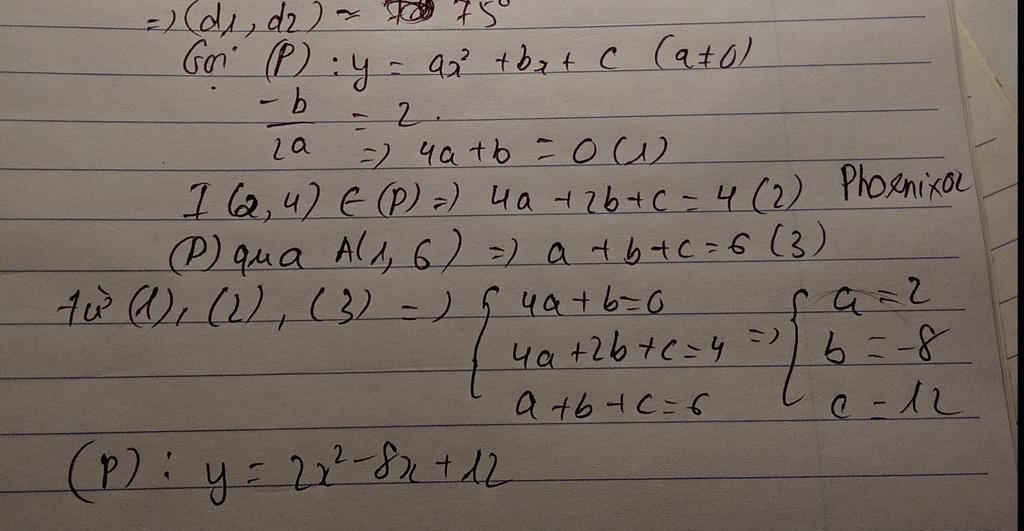 =) (d1, d2) ≈ 75°
Gọi (P) : y = ax² + bx + c (a≠0)
-b/2a = 2.
=) 4a + b = 0 (1)
I (2, 4) ∈ (P) =) 4a + 2b + c = 4 (2) Phoenixaz
(P) qua A(1, 6) =) a + b + c = 6 (3)
từ (1), (2), (3) =) { 4a + b = 0 =) { a = 2
4a + 2b + c = 4 b = -8
a + b + c = 6 c = 12
(P) : y = 2x² - 8x + 12